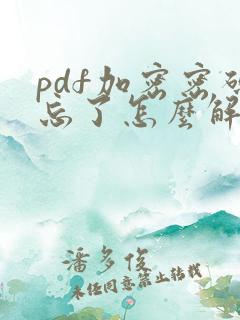 pdf加密密碼
忘了怎麼解
潘多俊
未经同意禁止转载